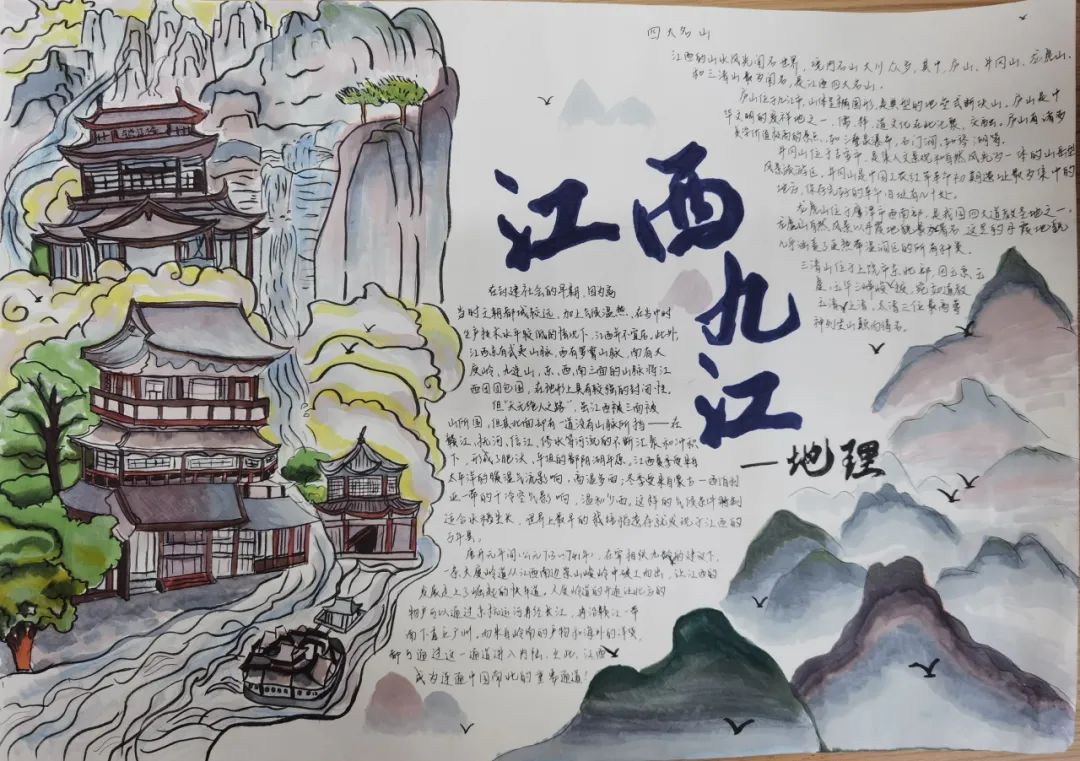 江西九江
—地理
四大名山
江西的山水风光闻名世界,境内名山大川众多,其中,庐山、井冈山、龙虎山、
和三清山最为闻名,是江西四大名山。
庐山位于九江市,山体呈椭圆形,是典型的地垒式断块山。庐山是中
华文明的发祥地之一,儒、释、道文化在此汇聚、交融。庐山有诸多
美学价值较高的景点,如三叠泉瀑布,石门涧,如琴湖等。
井冈山位于吉安市,是集人文景观和自然风光为一体的山岳型
风景旅游区,井冈山是中国工农红军革命初期遗址最为集中的
地方,保存完好的革命旧址有几十处。
龙虎山位于鹰潭市西南部,是我国四大道教圣地之一。
龙虎山自然风景以丹霞地貌最为著名,这里的丹霞地貌
几乎涵盖了亚热带湿润区的所有种类
三清山位于上饶市东北部,因玉京、玉
虚、玉华三峰峻拔,宛如道教
玉清、上清、太清三位最高尊
神列坐山巅而得名。
在封建社会的早期,因为离
当时王朝都城较远,加上气候湿热,在当时
生产技术水平较低的情况下,江西并不宜居。此外,
江西东有武夷山脉,西有罗霄山脉,南有大
庾岭、九连山,东、西、南三面的山脉将江
西团团包围,在地形上具有较强的封闭性
但“天无绝人之路”,虽江西被三面被
山所围,但其北面却有一道没有山脉所挡——在
赣江、抚河、信江、修水等河流的不断汇聚和冲积
下,形成了肥沃、平坦的鄱阳湖平原。江西夏季受来自
太平洋的暖湿气流影响,高温多雨;冬季受来自蒙古—西伯利
亚一带的干冷空气影响,温和少雨。这样的气候条件特别
适合水稻生长,世界上最早的栽培稻遗存就发现于江西的
万年县。
唐开元年间(公元713—741年),在宰相张九龄的建议下,
一条大庾岭道从江西南边崇山峻岭中破土而出,让江西的
发展走上了崛起的快车道,大庾岭道的开通让北方的
物产可以通过京杭运河再经长江,再沿赣江一带
南下直达广州,而来自岭南的产物和海外的洋货,
都可通过这一通道进入内陆,至此,江西
成为连通中国南北的重要通道!